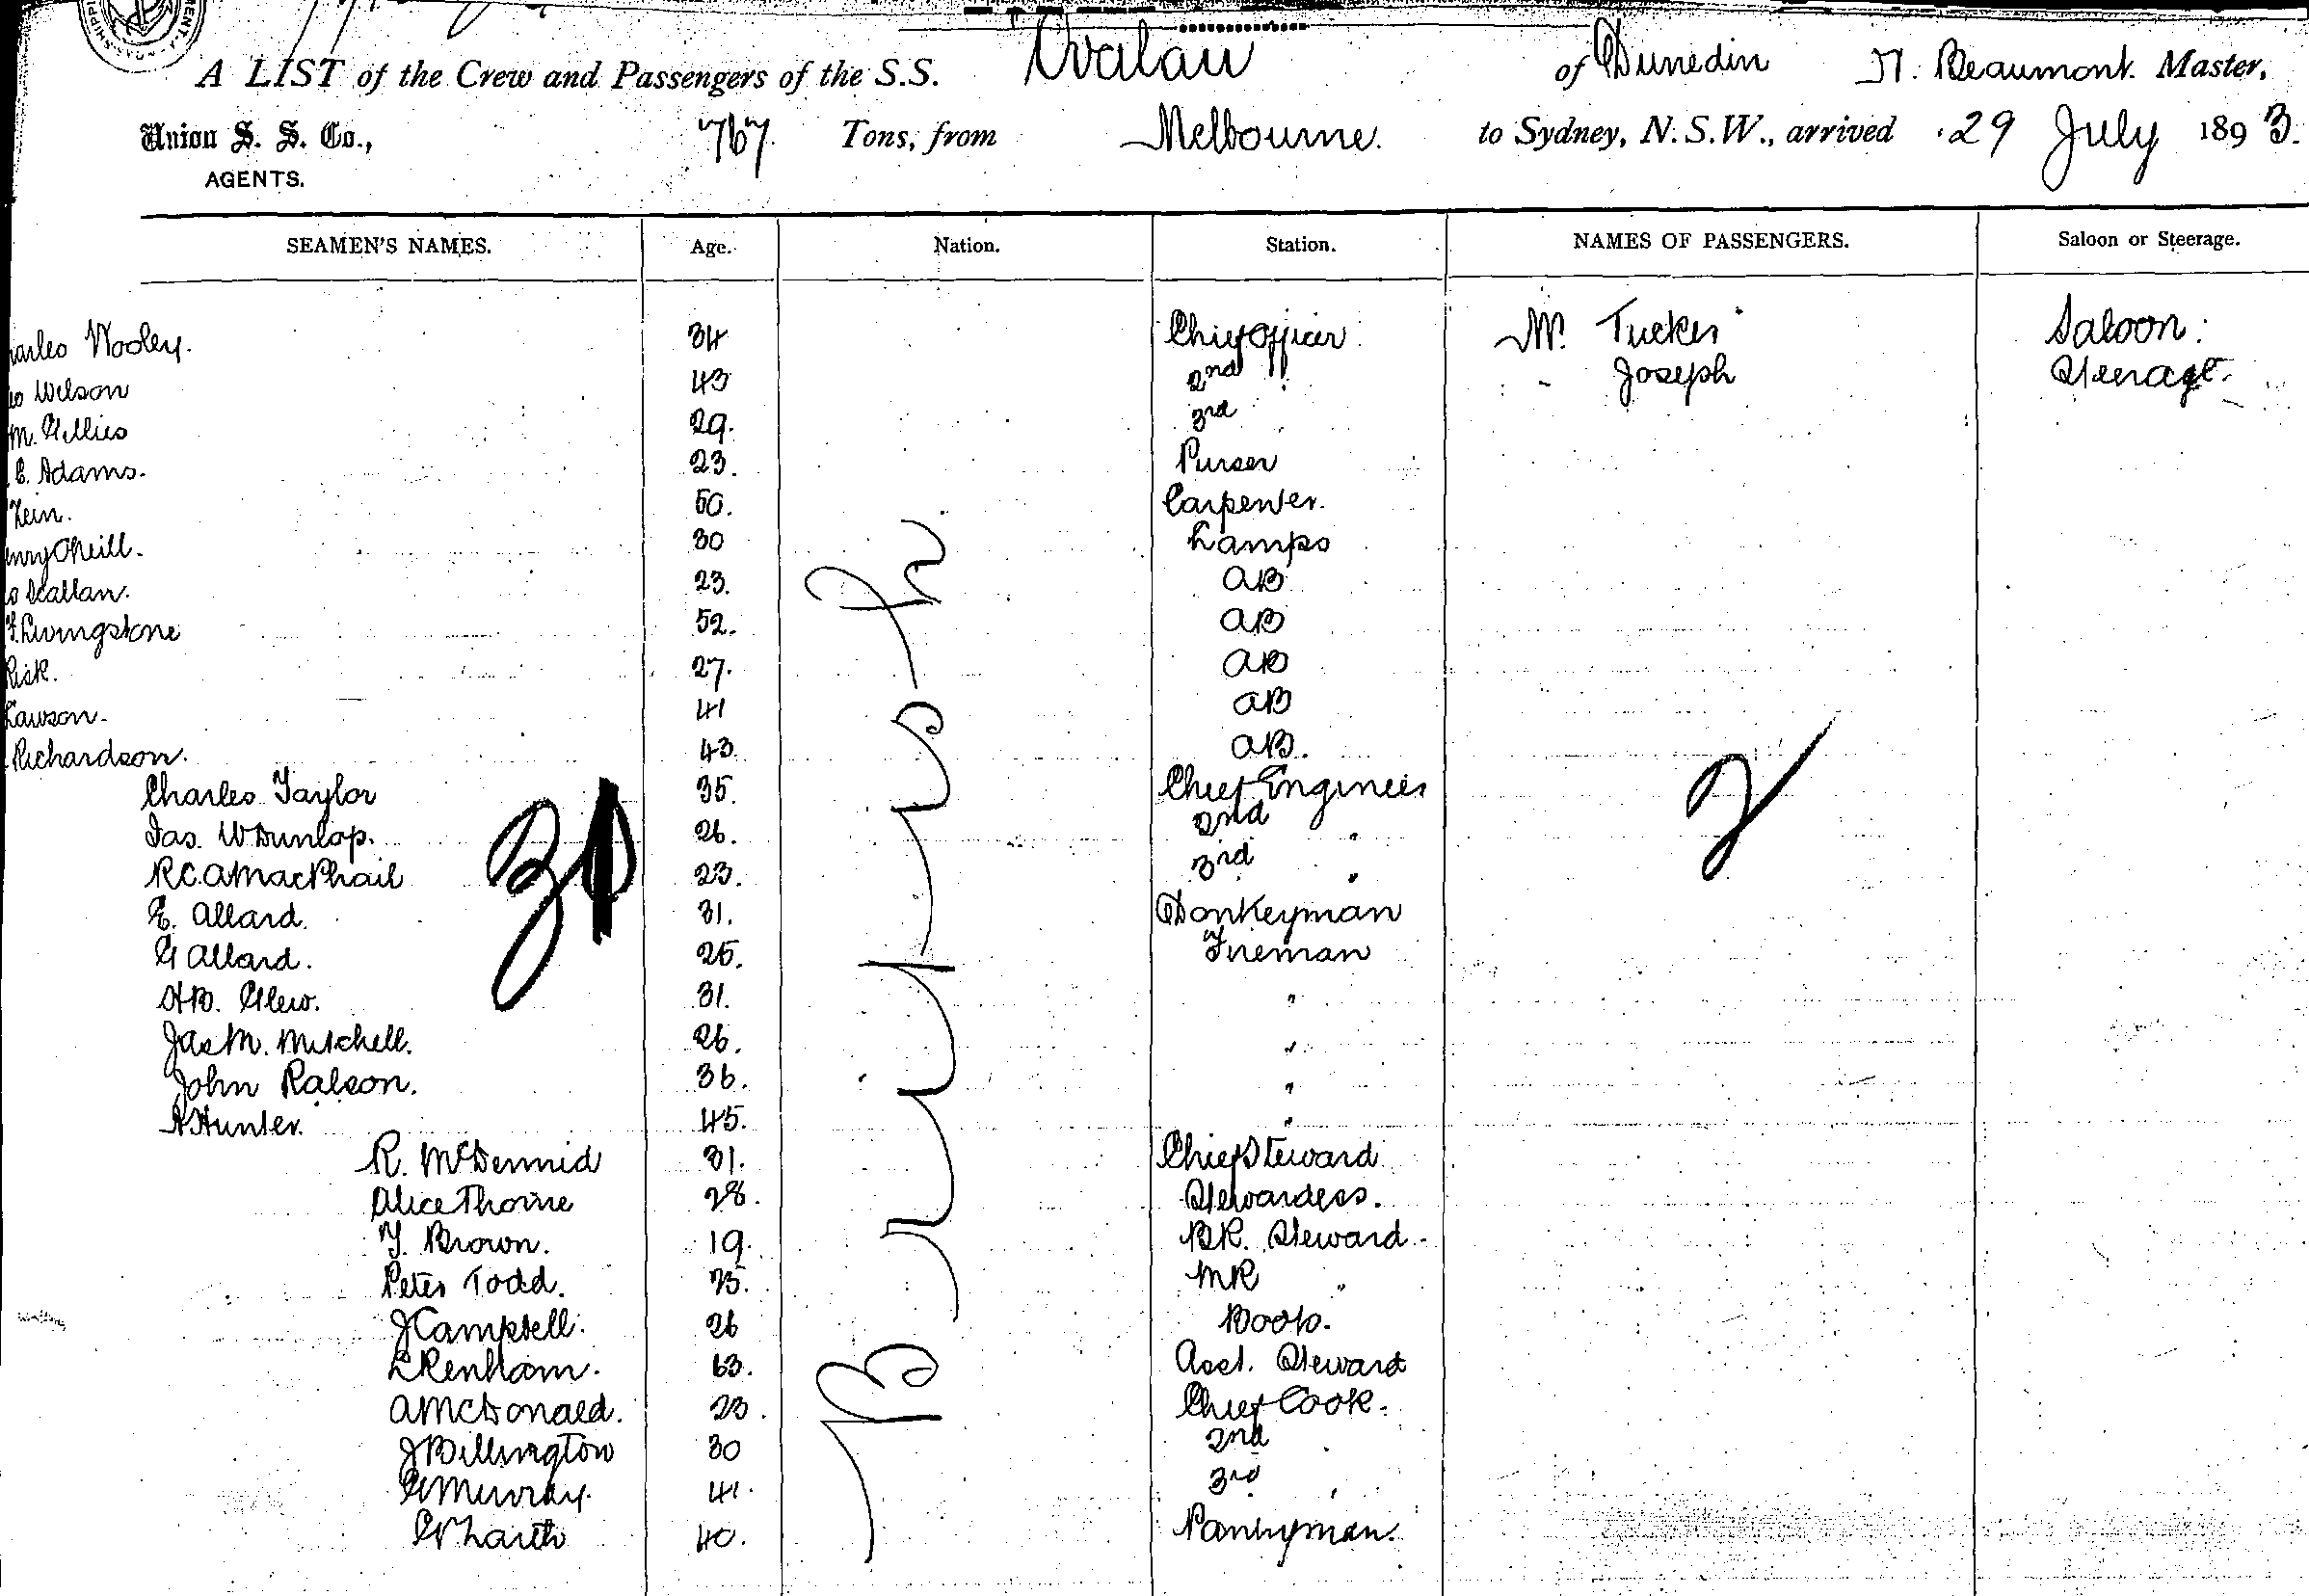 A LIST of the Crew and Passengers of the S.S. Ovalau of Dunedin H. Beaumont. Master,
Union S. S. Co., 767 Tons, from Melbourne. to Sydney, N.S.W., arrived 29 July 1893.
AGENTS.
SEAMEN'S NAMES. Age. Nation. Station. NAMES OF PASSENGERS. Saloon or Steerage.
harles Wooley. 34 Chief Officer Mr. Tucker Saloon.
Wilson 43 2nd " " Joseph Steerage.
m. Gillies 29. 3rd
C. Adams. 23. Purser
50. Carpenter.
enry O'Neill. 30 Lamps
Scallan. 23. AB
Livingstone 52. AB
Risk. 27. AB
Lawson. 41 AB
Richardson. 43. AB.
Charles Taylor 35. Chief Engineer
Jas. W Dunlop. 26. 2nd "
R.C.A MacPhail 23. 3rd "
E. Allard. 31. Donkeyman
G Allard. 25. Fireman
H.B. Glew. 31. "
Jas M. Mitchell. 26. "
John Ralson. 36. "
A Hunter. 45. "
R. McDermid 31. Chief Steward
Alice Thorne 28. Stewardess.
T. Brown. 19. BR. Steward.
Peter Todd. 25. MR "
J Campbell. 26 Boots.
L Renham. 63. Asst. Steward
A McDonald. 23. Chief Cook.
J Billington 30 2nd "
G Murray. 41. 3rd "
40. Pantryman.
British
30
2